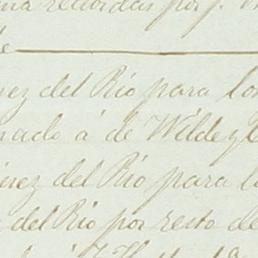 recordas por J.
de
ez del Rio para lo
nado á de Wilde y C
nez del Rio para l
del Rio por resto de